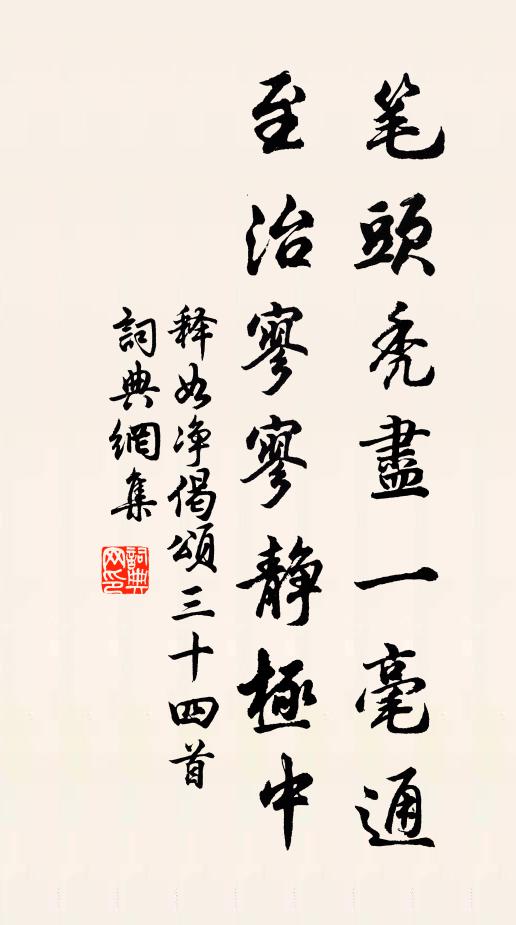 笔頭秃盡一毫通
至治寥寥靜極中
释如净偈頌三十四首
詞典網集
詞典网印